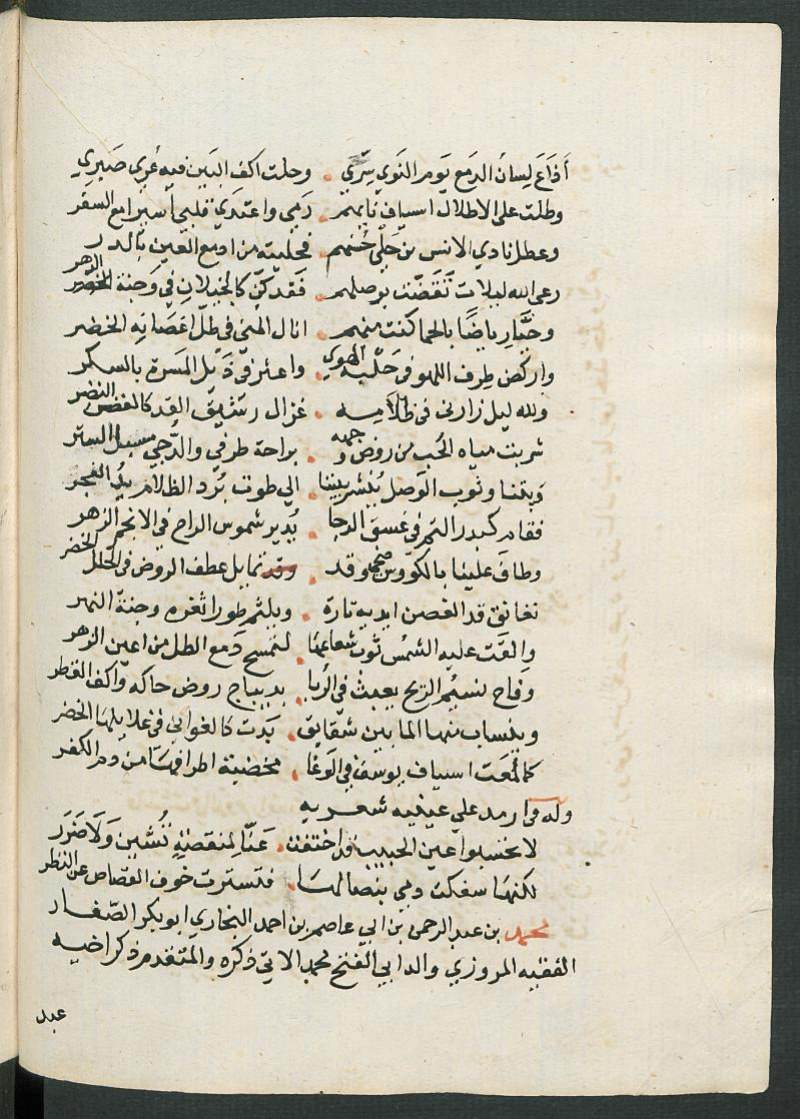 أذاع لسان الدمع يوم النوي سِرّي . وحلت اكف البين فيه عُري صَبري
وطلت علي الاطلال اسياف نايهم . دَمي واغتدَي قلبي أسيرا مع السفر
وعطل نادي الانس من حَلي حُسنهم . فحليته من ادمع العين بالدر
رعي الله ليلات تقضّت بوصلهم . فقد كنّ كالخيلان في وجنة الدهر
وحيّا رياضًا بالحما كنت منهم . انال المني في ظلّ اغصانه الخضر
واركض طرف اللهو في حَلبة الهوي . واعثر في ذيل المسَرة بالسكر
ولله ليل زارني في ظلامه . غزال رشيق القد كالغصن النضر
شربت مياه الحُب من روض وجهه . براحة طرفي والدّجي مسبل الستر
وبتنا وثوب الوَصل يُنشر بيننا . الي طوت بُرد الظلام يدُ الفجر
فقام كبدر التم في غسق الدجا . يُدير شموس الراح في الانجم الزهر
وطافَ علينا بالكووس صُحي وقد . تمايل عطف الروض في الحُلل الخضر
تعانق قد الغصن ايديه تارة . ويلثم طورا ثغره وجنة النهر
والقت عليه الشمس ثوب شعاعها . لتمسح دَمع الطل من اعين الزهر
وفاح نسيم الريح يعبث في الربا . بديباج روض حاكه واكف القطر
وينساب منها الما بين شقايق . بَدت كالغواني في غلايلها الخضر
كما لمعت اسياف يوسف في الوَغا . مخضبة اطرافها من دم الكفر
وله في ارمد علي عينيه شعريه
لا تحسبوا عين الحبيب قد اختفت . عَنّا لمنقصَةٍ تُشين وَلَا ضَرَر
لكنها سفكت دمي بنصالها . فتسترت خوف القصاص عن النظر
محمد بن عبد الرحمن بن ابي عاصم بن احمد البخاري ابو بكر الصّفار
الفقيه المروزي والد ابي الفتح محمد الاتي ذكره والمتقدم ذكر اخيه
عبد